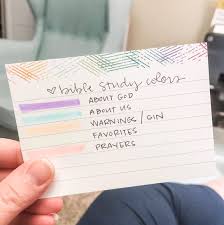 bible study colors
ABOUT GOD
ABOUT US
WARNINGS / GIN
FAVORITES
PRAYERS